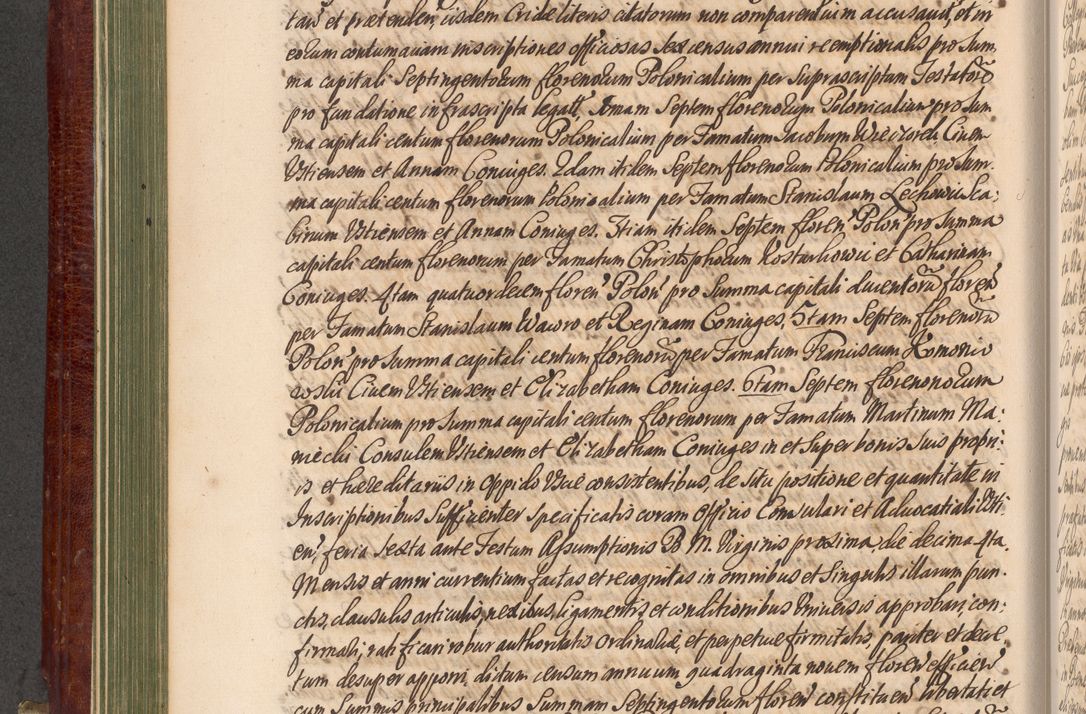 tare et prætenden, eisdem Cride literis citatorum non comparentium accusavit, et in
eorum contumaciam inscriptiones officiosas sex census annui reemptionalis pro Sum
ma capitali Septingentorum florenorum Polonicalium per Suprascriptum Testatorē
pro fundatione infrascripta legatt, 1mam Septem florenorum Polonicalium pro Sum
ma capitali centum florenorum Polonicalium per Famatum Jacobum Wieczorek Civem
Ustiensem et Annam Coniuges. 2dam itidem Septem florenorum Polonicalium pro Sum
ma capitali centum florenorum Polonicalium per Famatum Stanislaum Lechowic Sca:
binum Ustiensem et Annam Coniuges. 3tiam itidem Septem floren Polon pro Summa
capitali centum florenorum per Famatum Christophorum Kosturkowic et Catharinam
Coniuges. 4tam quatuordecem floren Polon pro Summa capitali ducentorū floren
per Famatum Stanislaum Wawro et Reginam Coniuges. 5tam Septem florenorū
Polon pro Summa capitali centum florenorū per Famatum Franciscum Komonie
coslii Civem Ustiensem et Elizabetham Coniuges. 6tam Septem florenonorum
Polonicalium pro Summa capitali centum florenorum per Famatum Martinum Ma:
niecki Consulem Ustiensem et Elizabetham Coniuges in et super bonis suis propri:
is et hæreditariis in oppido Uscie consistentibus, de situ positione et quantitate in
Inscriptionibus Sufficienter specificatis coram Officio Consulari et Advocatiali Usti
en, feria Sexta ante Festum Assumptionis B. M. Virginis proxima die decima 4ta.
Mensis et anni currentium factas et recognitas in omnibus et Singulis illarum pun.
ctis, clausulis articulis, nexibus, ligamentis et conditionibus Universis approbari, con:
firmali, ratificari robur authoritatis ordinariæ, et perpetuæ firmitatis, pariter et decre
tum desuper apponi, dictum censum annuum quadraginta novem floren efficien
cum Summis principalibus Summam Septingentorum floren constituen libertati et